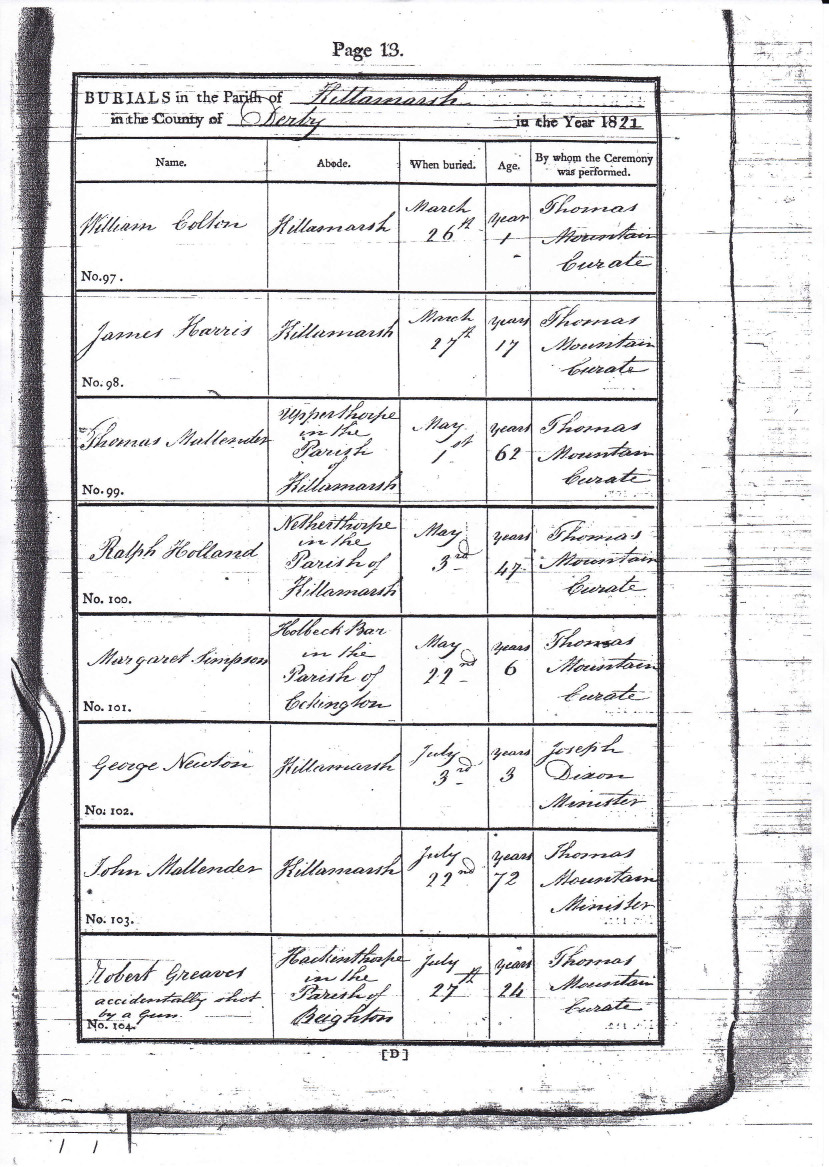 Page 13.
BURIALS in the Parish of Killamarsh
in the County of Derby in the Year 1821
Name. Abode. When buried. Age. By whom the Ceremony was performed.
William Colton
No. 97.
Killamarsh
March
26th
year
1
Thomas
Mountain
Curate
James Harris
No. 98.
Killamarsh
March
27th
years
17
Thomas
Mountain
Curate
Thomas Mallender
No. 99.
Upperthorpe
in the
Parish
of
Killamarsh
May
1st
years
62
Thomas
Mountain
Curate
Ralph Holland
No. 100.
Netherthorpe
in the
Parish of
Killamarsh
May
3rd
years
47
Thomas
Mountain
Curate
Margaret Simpson
No. 101.
Holbeck Bar
in the
Parish of
Eckington
May
22nd
years
6
Thomas
Mountain
Curate
George Newton
No. 102.
Killamarsh
July
3rd
years
3
Joseph
Dixon
Minister
John Mallender
No. 103.
Killamarsh
July
22nd
years
72
Thomas
Mountain
Minister
Robert Greaves
accidentally shot
by a Gun
No. 104.
Hackinthorpe
in the
Parish of
Beighton
July
27th
Years
24
Thomas
Mountain
Curate
[D]